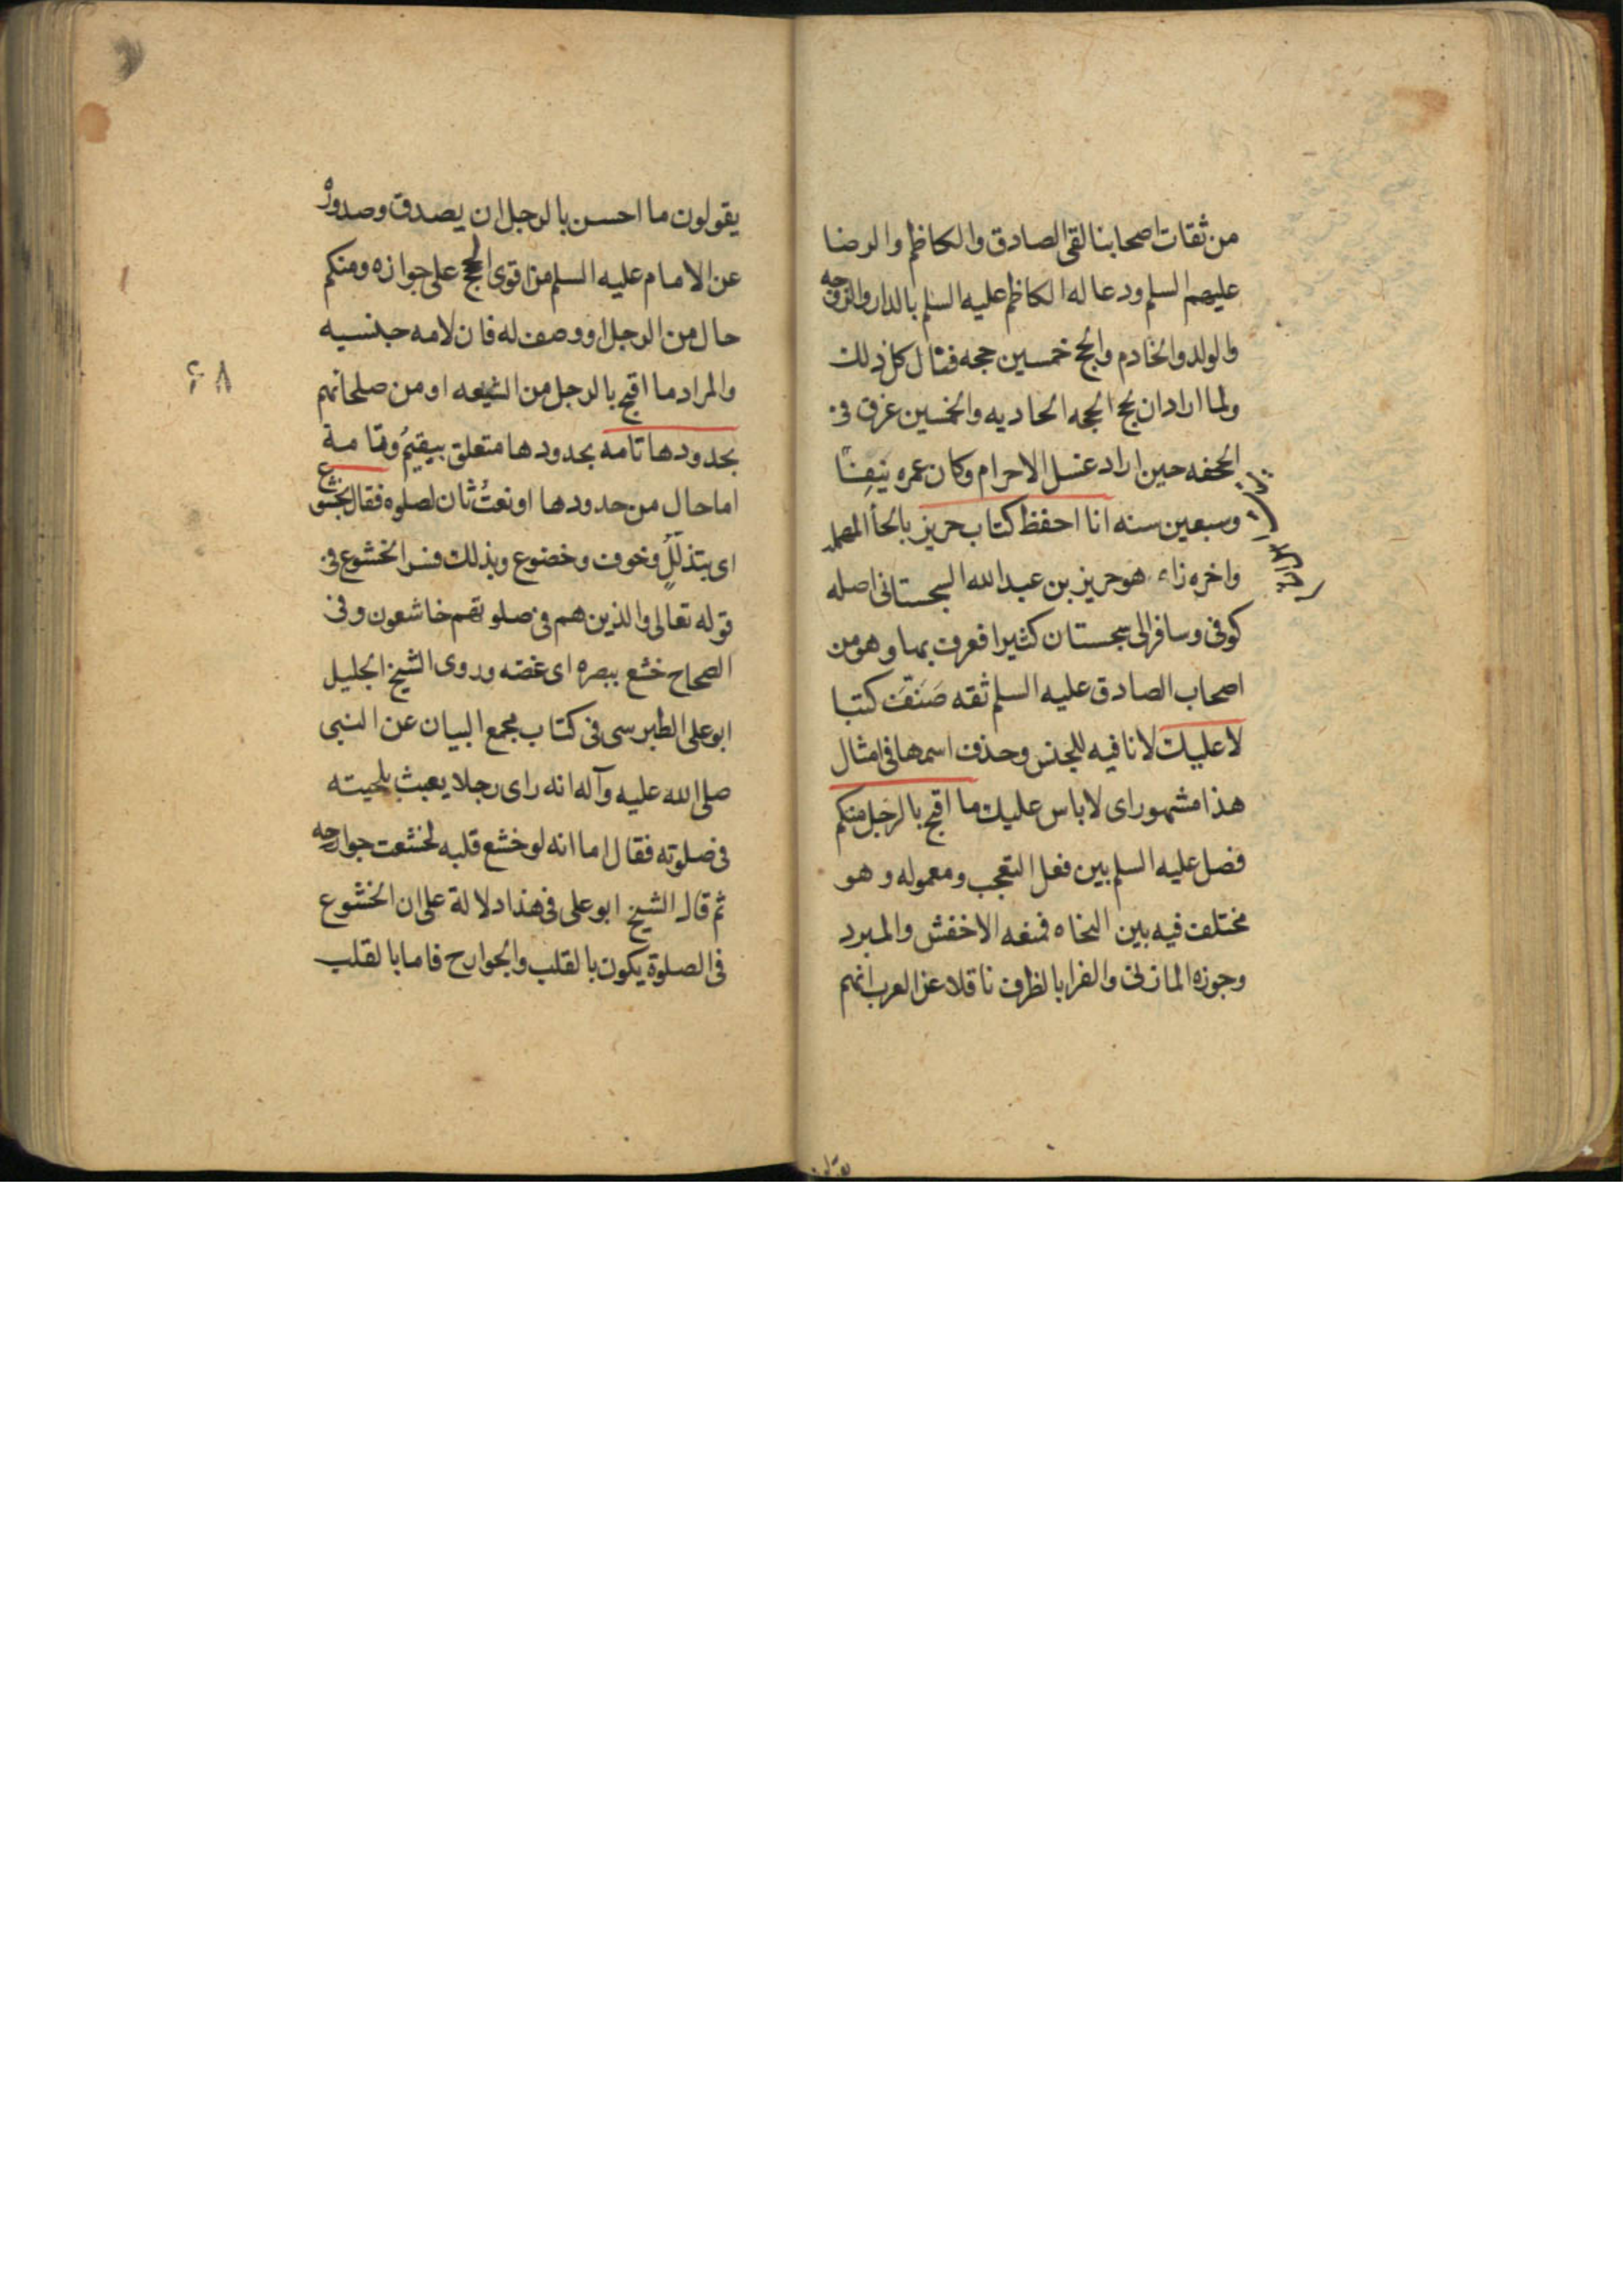 من ثقات اصحابنا لقى الصادق والكاظم والرضا
عليهم السلم ودعا له الكاظم عليه السلم بالدار والزوجه
والولد والخادم والحج خمسين حجه فنال كل ذلك
ولما اراد ان يحج الحجه الحاديه والخمسين غرق فى
الجحفه حين اراد غسل الاحرام وكان عمره نيفا
وسبعين سنه انا احفظ كتاب حريز بالحأ المهمله
واخره زاء هو حريز بن عبدالله السجستانى اصله
كوفى وسافر الى سجستان كثيرا فعرف بها وهو من
اصحاب الصادق عليه السلم ثقه صَنَّفَ كتبا
لا عليك لا نافيه للجنس وحذف اسمها فى امثال
هذا مشهور اى لا باس عليك ما اقبح بالرجل منكم
فصل عليه السلم بين فعل التعجب ومعموله وهو
مختلف فيه بين النحاه فمنعه الاخفش والمبرد
وجوزه المازنى والفرا بالظرف ناقلا عن العرب انهم
يقولون
يقولون ما احسن بالرجل ان يصدق وصدوره
عن الامام عليه السلم من اقوى الحجج على جوازه ومنكم
حال من الرجل او وصف له فان لامه جنسيه
والمراد ما اقبح بالرجل من الشيعه او من صلحائهم
بحدودها تامه بحدودها متعلق بيقيمُ وتامة
اما حال من حدودها او نعتُ ثان لصلوه فقال بخشوع
اى بتذللٍ وخوف وخضوع وبذلك فسر الخشوع فى
قوله تعالى والذين هم فى صلوتهم خاشعون وفى
الصحاح خشع ببصره اى غضه وروى الشيخ الجليل
ابو على الطبرسى فى كتاب مجمع البيان عن النبى
صلى الله عليه وآله انه راى رجلا يعبث بلحيته
فى صلوته فقال اما انه لو خشع قلبه لخشعت جوارحه
ثم قال الشيخ ابو على فى هذا دلالة على ان الخشوع
فى الصلوة يكون بالقلب والجوارح فاما بالقلب